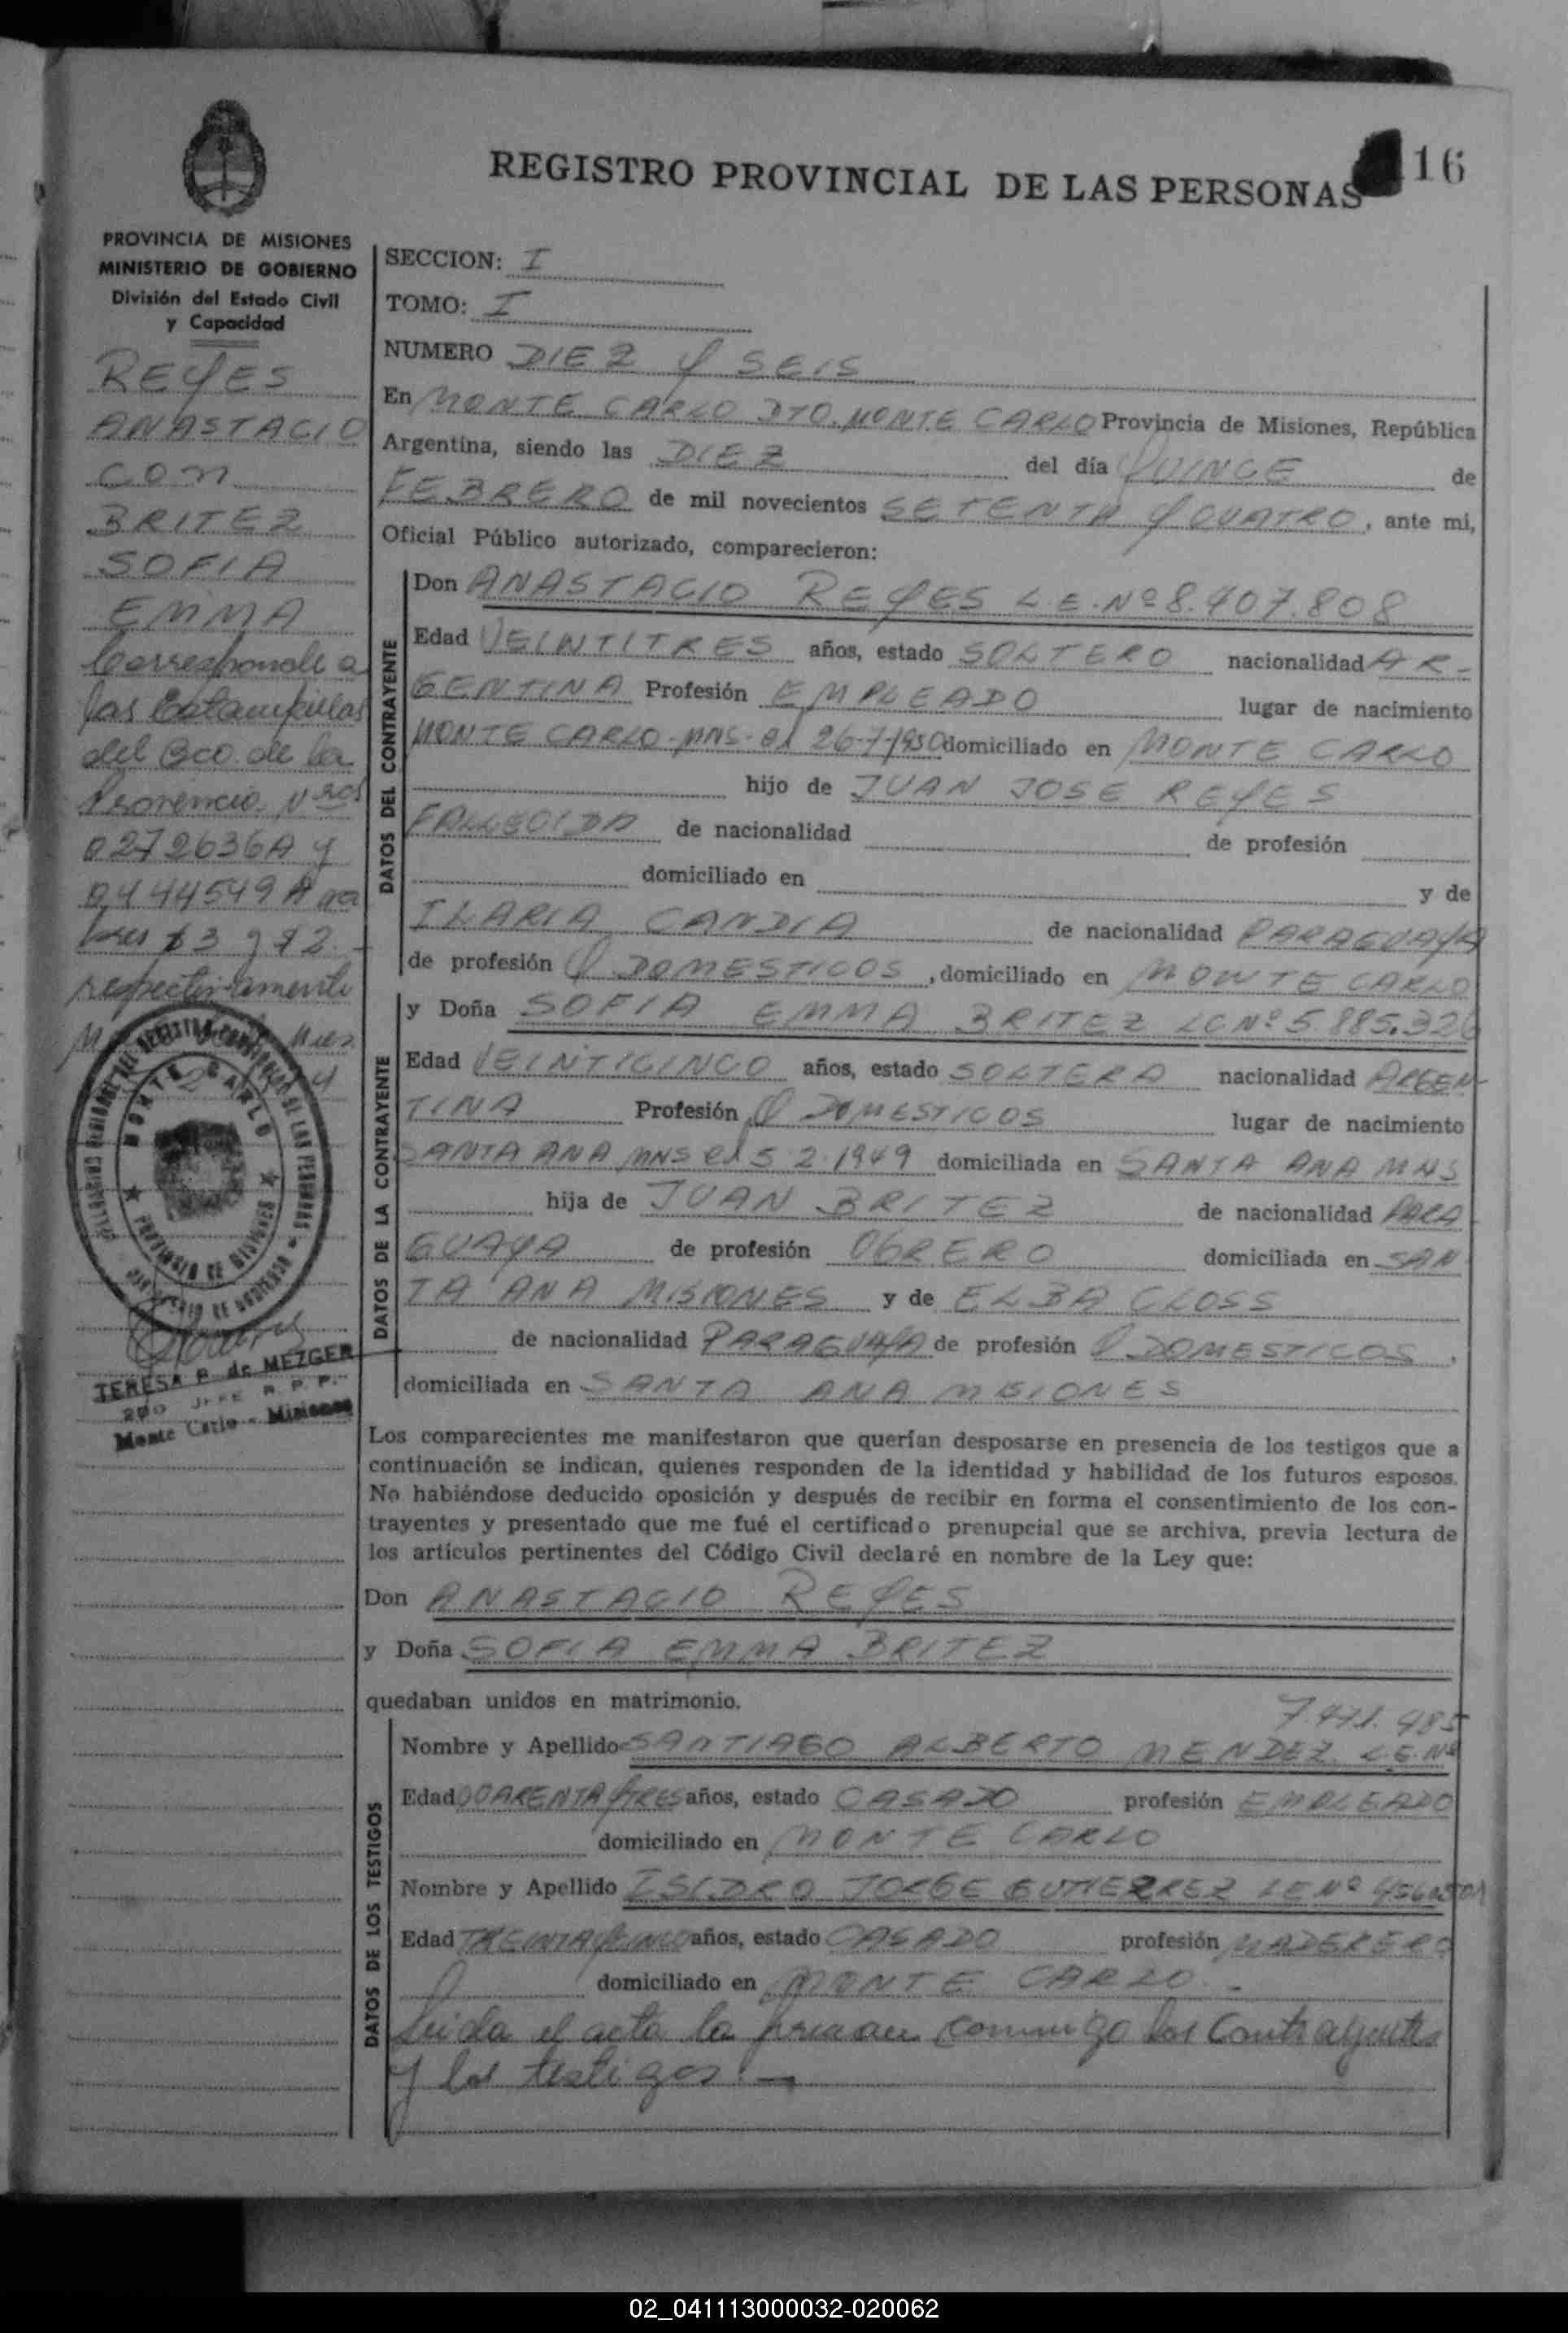 REGISTRO PROVINCIAL DE LAS PERSONAS
16
PROVINCIA DE MISIONES
MINISTERIO DE GOBIERNO
División del Estado Civil
y Capacidad
REYES
ANASTACIO
CON
BRITEZ
SOFIA
EMMA
Corresponde a
las Estampillas
del Bco. de la
Provincia Nros
0272636A y
0444549A va
lores $3 y $2.-
respectivamente
MONTE CARLO
TERESA P. de MEZGER
JEFE R. P. P.
Monte Carlo - Misiones
SECCION: I
TOMO: I
NUMERO DIEZ Y SEIS
En MONTE CARLO DTO. MONTE CARLO Provincia de Misiones, República
Argentina, siendo las DIEZ del día QUINCE de
FEBRERO de mil novecientos SETENTA Y CUATRO, ante mi,
Oficial Público autorizado, comparecieron:
DATOS DEL CONTRAYENTE
Don ANASTACIO REYES L.E. Nº 8.407.808
Edad VEINTITRES años, estado SOLTERO nacionalidad AR-
GENTINA Profesión EMPLEADO lugar de nacimiento
MONTE CARLO-MNS- el 26-7-1950 domiciliado en MONTE CARLO
hijo de JUAN JOSE REYES
FALLECIDO de nacionalidad de profesión
domiciliado en y de
ILARIA CANDIA de nacionalidad PARAGUAYA
de profesión Q DOMESTICOS, domiciliado en MONTE CARLO
DATOS DE LA CONTRAYENTE
y Doña SOFIA EMMA BRITEZ LC Nº 5.885.326
Edad VEINTICINCO años, estado SOLTERA nacionalidad ARGEN-
TINA Profesión Q DOMESTICOS lugar de nacimiento
SANTA ANA MNS el 5.2.1949 domiciliada en SANTA ANA MNS
hija de JUAN BRITEZ de nacionalidad PARA
GUAYA de profesión OBRERO domiciliada en SAN
TA ANA MISIONES y de ELBA CLOSS
de nacionalidad PARAGUAYA de profesión Q DOMESTICOS,
domiciliada en SANTA ANA MISIONES
Los comparecientes me manifestaron que querían desposarse en presencia de los testigos que a
continuación se indican, quienes responden de la identidad y habilidad de los futuros esposos.
No habiéndose deducido oposición y después de recibir en forma el consentimiento de los con-
trayentes y presentado que me fué el certificado prenupcial que se archiva, previa lectura de
los artículos pertinentes del Código Civil declaré en nombre de la Ley que:
Don ANASTACIO REYES
y Doña SOFIA EMMA BRITEZ
quedaban unidos en matrimonio.
DATOS DE LOS TESTIGOS
7.471.485
Nombre y Apellido SANTIAGO ALBERTO MENDEZ L.E. Nº
Edad CUARENTA Y TRES años, estado CASADO profesión EMPLEADO
domiciliado en MONTE CARLO
Nombre y Apellido ISIDRO JORGE GUTIERREZ LE Nº
Edad TREINTA Y CINCO años, estado CASADO profesión MADERERO
domiciliado en MONTE CARLO.-
Leida el acta la firman conmigo los Contrayentes
y los testigos.-
02_041113000032-020062